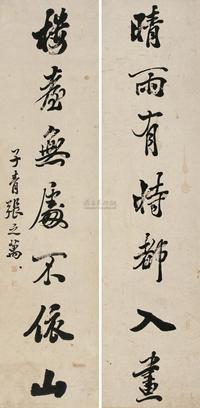 晴雨有時都入畫
樓臺無處不依山
子青張之萬